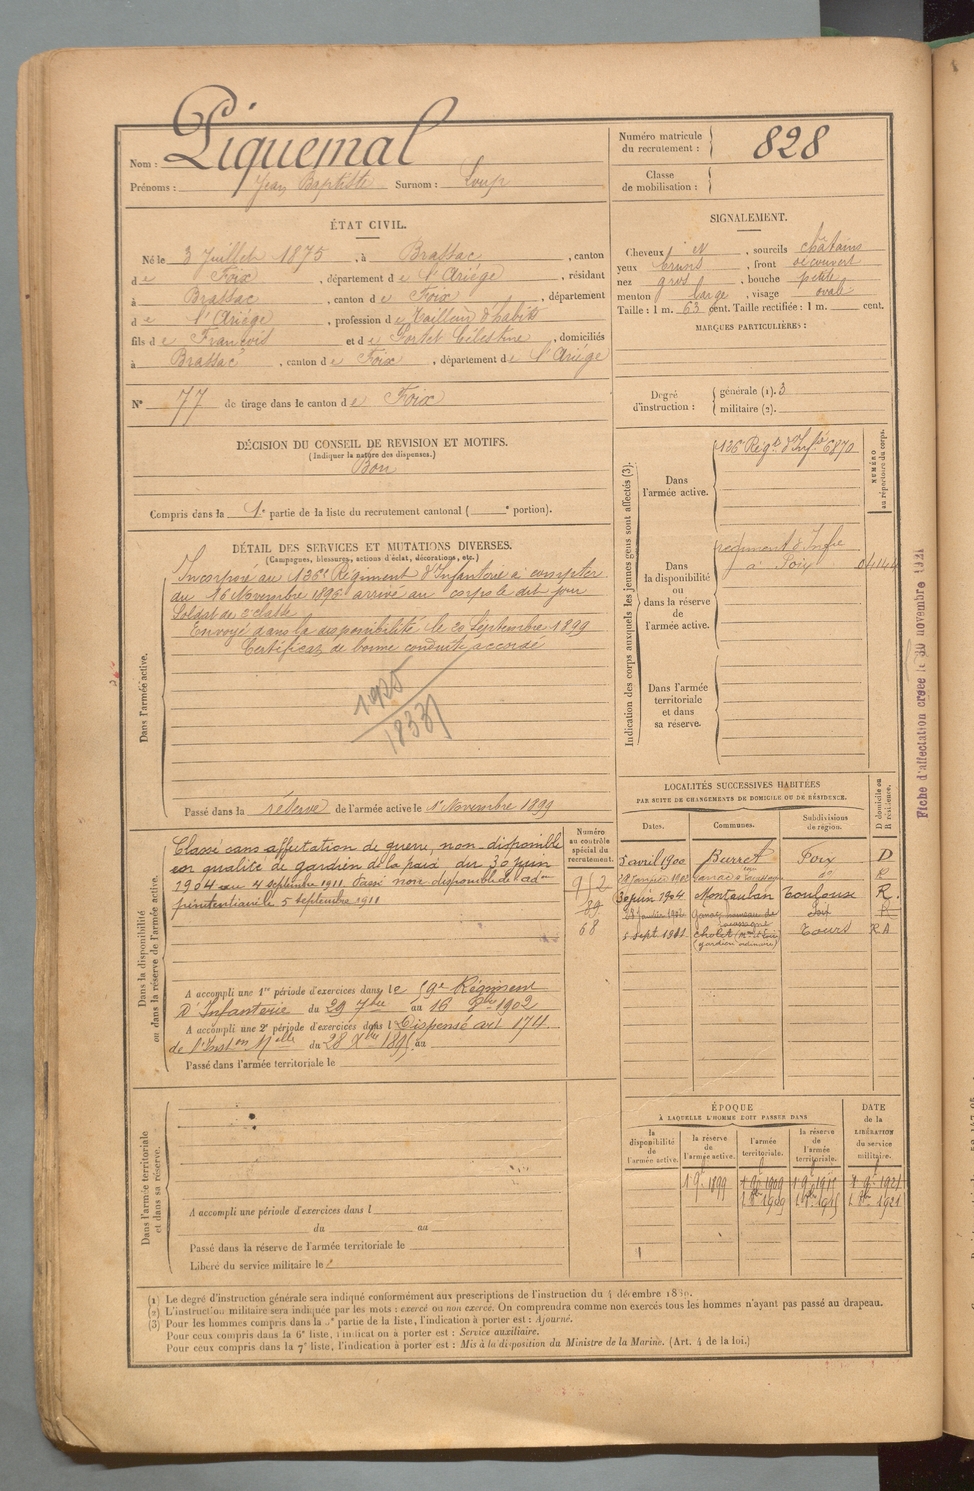 Nom : Piquemal
Prénoms : Jean Baptiste Surnom : Loup
Numéro matricule du recrutement : 828
Classe de mobilisation :
ÉTAT CIVIL.
Né le 3 Juillet 1875, à Brassac, canton
de Foix, département de l'Ariége, résidant
à Brassac, canton de Foix, département
de l'Ariége, profession de Tailleur d'habits
fils de François et de Portet Célestine, domiciliés
à Brassac, canton de Foix, département de l'Ariége
N° 77 de tirage dans le canton de Foix
DÉCISION DU CONSEIL DE REVISION ET MOTIFS.
(Indiquer la nature des dispenses.)
Bon
Compris dans la 1e partie de la liste du recrutement cantonal ( e portion).
SIGNALEMENT.
Cheveux , sourcils châtains
yeux bruns , front découvert
nez gros , bouche petite
menton large , visage ovale
Taille : 1 m. 63 cent. Taille rectifiée : 1 m. cent.
MARQUES PARTICULIÈRES :
Degré d'instruction : générale (1). 3
militaire (2).
DÉTAIL DES SERVICES ET MUTATIONS DIVERSES.
(Campagnes, blessures, actions d'éclat, décorations, etc.)
Dans l'armée active.
Incorporé au 136e Régiment d'Infanterie à compter
du 16 Novembre 1896 arrivé au corps le dit jour
Soldat de 2e classe
Envoyé dans la disponibilité le 20 Septembre 1899
Certificat de bonne conduite accordé
Passé dans la réserve de l'armée active le 1er Novembre 1899
Indication des corps auxquels les jeunes gens sont affectés (3).
NUMÉRO au répertoire du corps.
Dans l'armée active.
136e Régt d'Infie 6870
Dans la disponibilité ou dans la réserve de l'armée active.
régiment d'Infie
à Foix
Dans l'armée territoriale et dans sa réserve.
Fiche d'affectation créée le 30 novembre 1921
Dans la disponibilité ou dans la réserve de l'armée active.
Classé sans affectation de guerre, non-disponible
en qualité de gardien de la paix du 30 juin
1904 au 4 septembre 1911. Passé non disponible de adon
pénitentiaire le 5 septembre 1911
Numéro au contrôle spécial du recrutement.
912
89
68
A accompli une 1re période d'exercices dans le 59e Régiment
d'Infanterie du 29 7bre au 16 8bre 1902
A accompli une 2e période d'exercices dans l Dispensé art 174
de l'Inston Melle du 28 Xbre 1895 au
Passé dans l'armée territoriale le
LOCALITÉS SUCCESSIVES HABITÉES
PAR SUITE DE CHANGEMENTS DE DOMICILE OU DE RÉSIDENCE.
Dates. Communes. Subdivisions de région. D domicile ou R résidence.
5 avril 1900 Burret Foix D
R
30 juin 1904 Montauban Toulouse R.
Foix R
5 sept 1911 Cholet Tours R A
(gardien ordinaire)
Dans l'armée territoriale et dans sa réserve.
A accompli une période d'exercices dans l
du au
Passé dans la réserve de l'armée territoriale le
Libéré du service militaire le
ÉPOQUE
À LAQUELLE L'HOMME DOIT PASSER DANS
la disponibilité de l'armée active. la réserve de l'armée active. l'armée territoriale. la réserve de l'armée territoriale.
DATE de la LIBÉRATION du service militaire.
(1) Le degré d'instruction générale sera indiqué conformément aux prescriptions de l'instruction du 4 décembre 1889.
(2) L'instruction militaire sera indiquée par les mots : exercé ou non exercé. On comprendra comme non exercés tous les hommes n'ayant pas passé au drapeau.
(3) Pour les hommes compris dans la 5e partie de la liste, l'indication à porter est : Ajourné.
Pour ceux compris dans la 6e liste, l'indication à porter est : Service auxiliaire.
Pour ceux compris dans la 7e liste, l'indication à porter est : Mis à la disposition du Ministre de la Marine. (Art. 4 de la loi.)